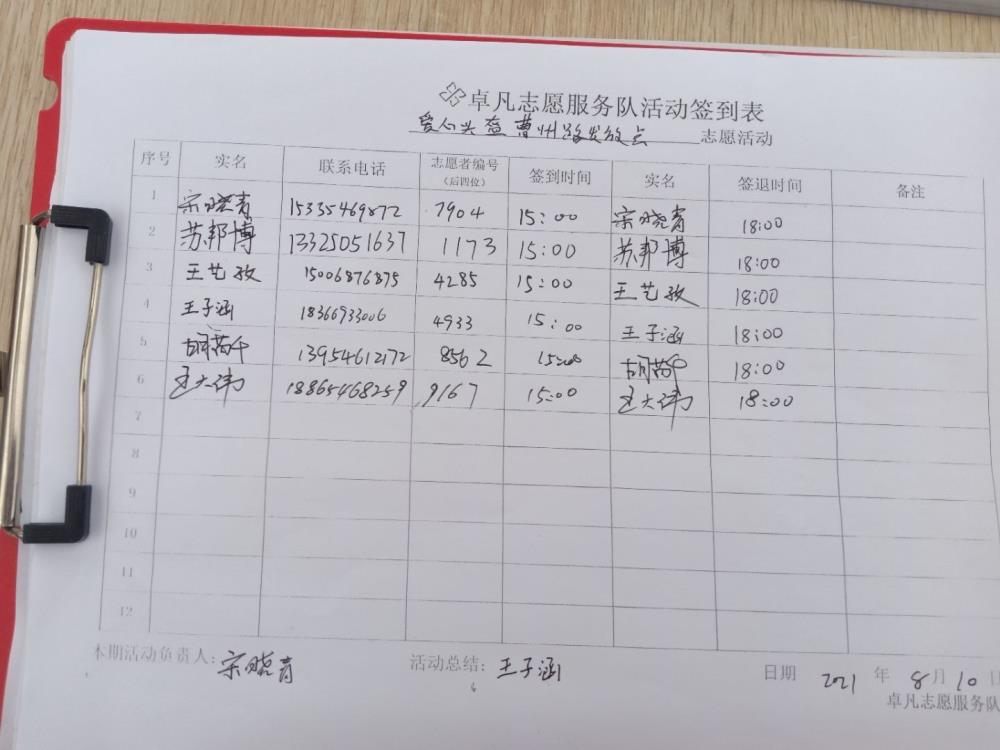 卓凡志愿服务队活动签到表
爱心头盔曹州路发放点 志愿活动
序号 实名 联系电话 志愿者编号（后四位） 签到时间 实名 签退时间 备注
1 宗晓青 15335469872 7904 15:00 宗晓青 18:00
2 苏邦博 13325051637 1173 15:00 苏邦博 18:00
3 王艺孜 15006876875 4285 15:00 王艺孜 18:00
4 王子涵 18366933006 4933 15:00 王子涵 18:00
5 13954612172 8562 15:00 18:00
6 王大伟 18865468259 9167 15:00 王大伟 18:00
7
8
9
10
11
12
本期活动负责人: 宗晓青 活动总结: 王子涵 日期 2021 年 8 月 10 日
卓凡志愿服务队